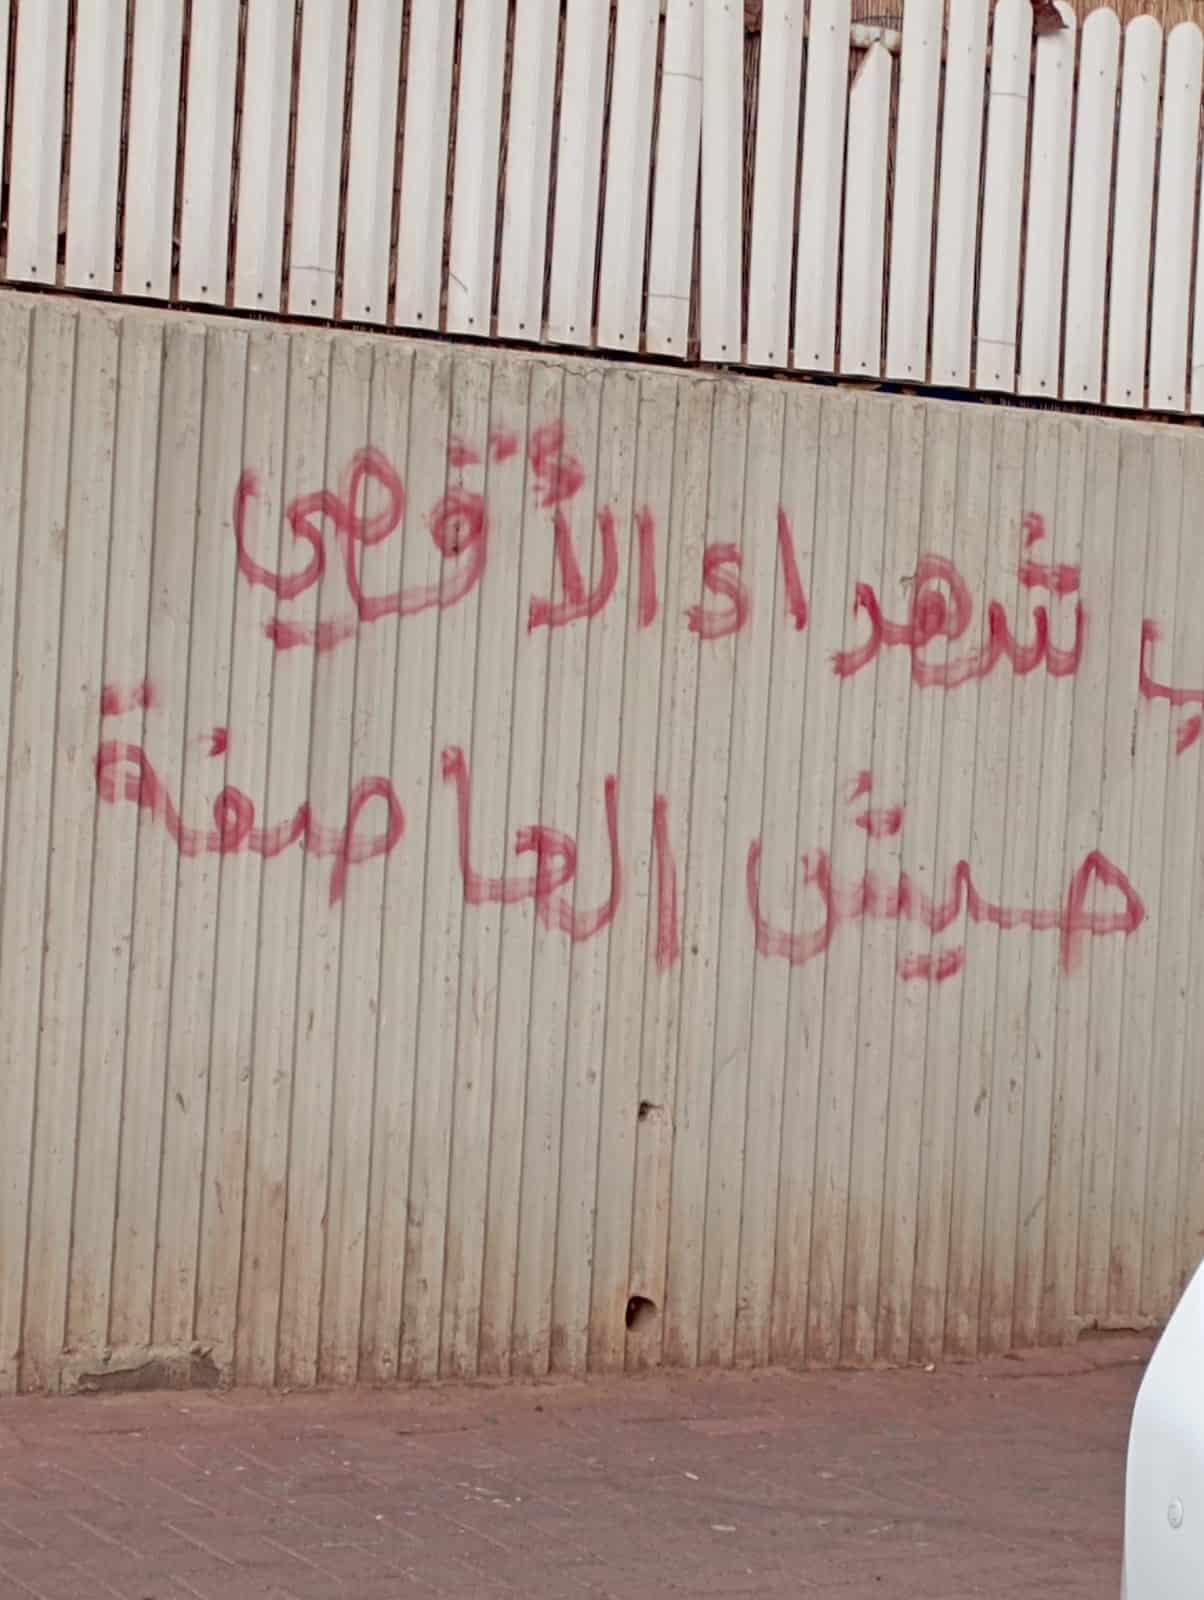 شهداء الأقصي
جيش العاصفة